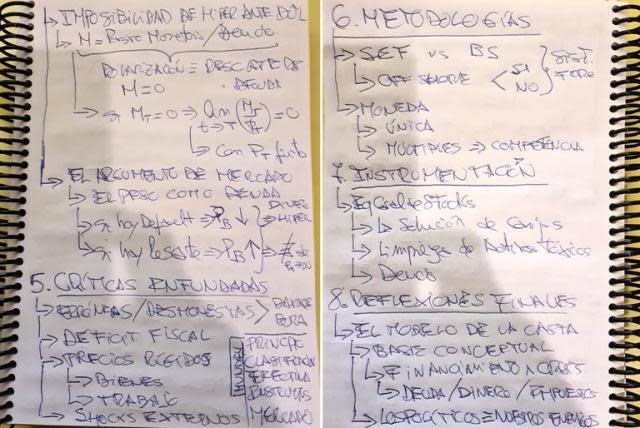 IMPOSIBILIDAD DE HIPER ANTE DOL
M = Base Monetaria / Deuda
DOLARIZACIÓN ≡ RESCATE DE
M=0 DEUDA
si M_T=0 ⇒ lim (M_T/P_T) = 0
t→T
con P_T finito
EL ARGUMENTO DE MERCADO
EL PESO COMO DEUDA
si hay Default ⇒ P_B ↓
HIPER
si hay Rescate ⇒ P_B ↑
5. CRÍTICAS INFUNDADAS
ERRÓNEAS / DESHONESTAS
DEFICIT FISCAL
PRECIOS RÍGIDOS
BIENES
TRABAJO
SHOCKS EXTERNOS
PRINCIPIO
CLASIFICACIÓN
EFECTIVA
MERCADO
6. METODOLOGÍAS
SEF vs BS
OFF SHORE < SI
NO
SIST.
MONEDA
ÚNICA
MÚLTIPLES ⇒ COMPETENCIA
7. INSTRUMENTACIÓN
Equal Stocks
Solución de
Limpieza de Activos Tóxicos
Deuda
8. REFLEXIONES FINALES
EL MODELO DE LA CASTA
BASE CONCEPTUAL
FINANCIAMIENTO
DEUDA / DINERO / IMPUESTOS
LOS POLÍTICOS ≡ NUESTROS ENEMIGOS